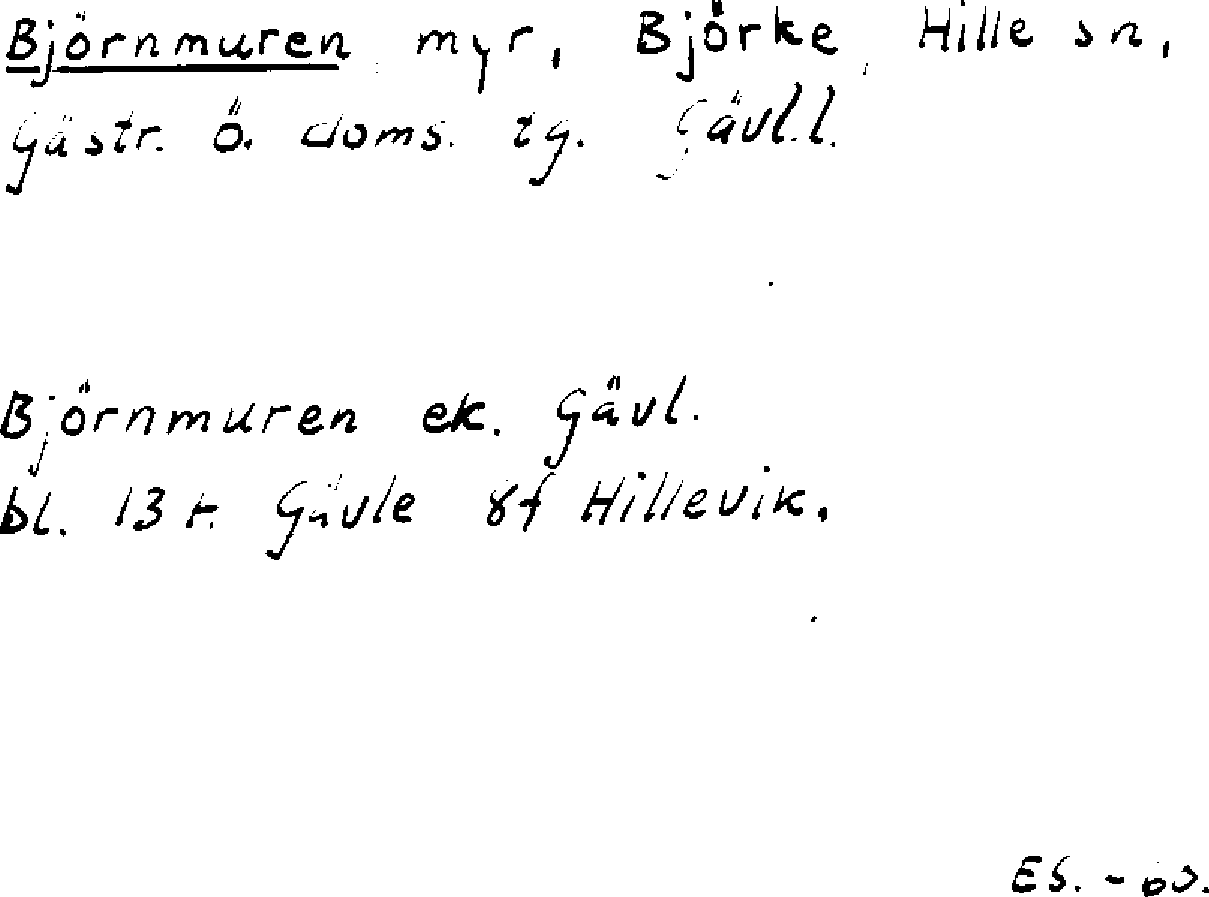 Björnmuren myr, Björke, Hille sn,
Gästr. ö. doms. tg. Gävl.l.
Björnmuren ek. Gävl.
bl. 13 r. Gävle Hillevik.
ES. -